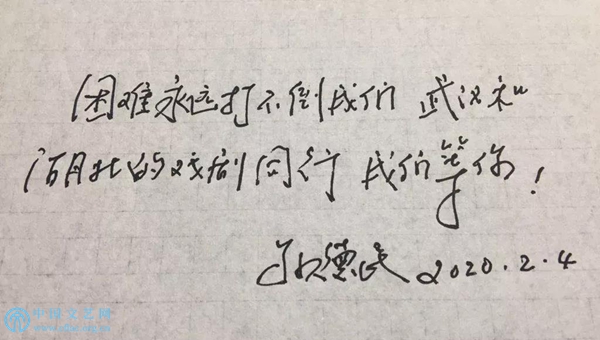 困难永远打不倒我们 武汉和
湖北的戏剧同行 我们等你!
孙德民 2020.2.4
中国文艺网